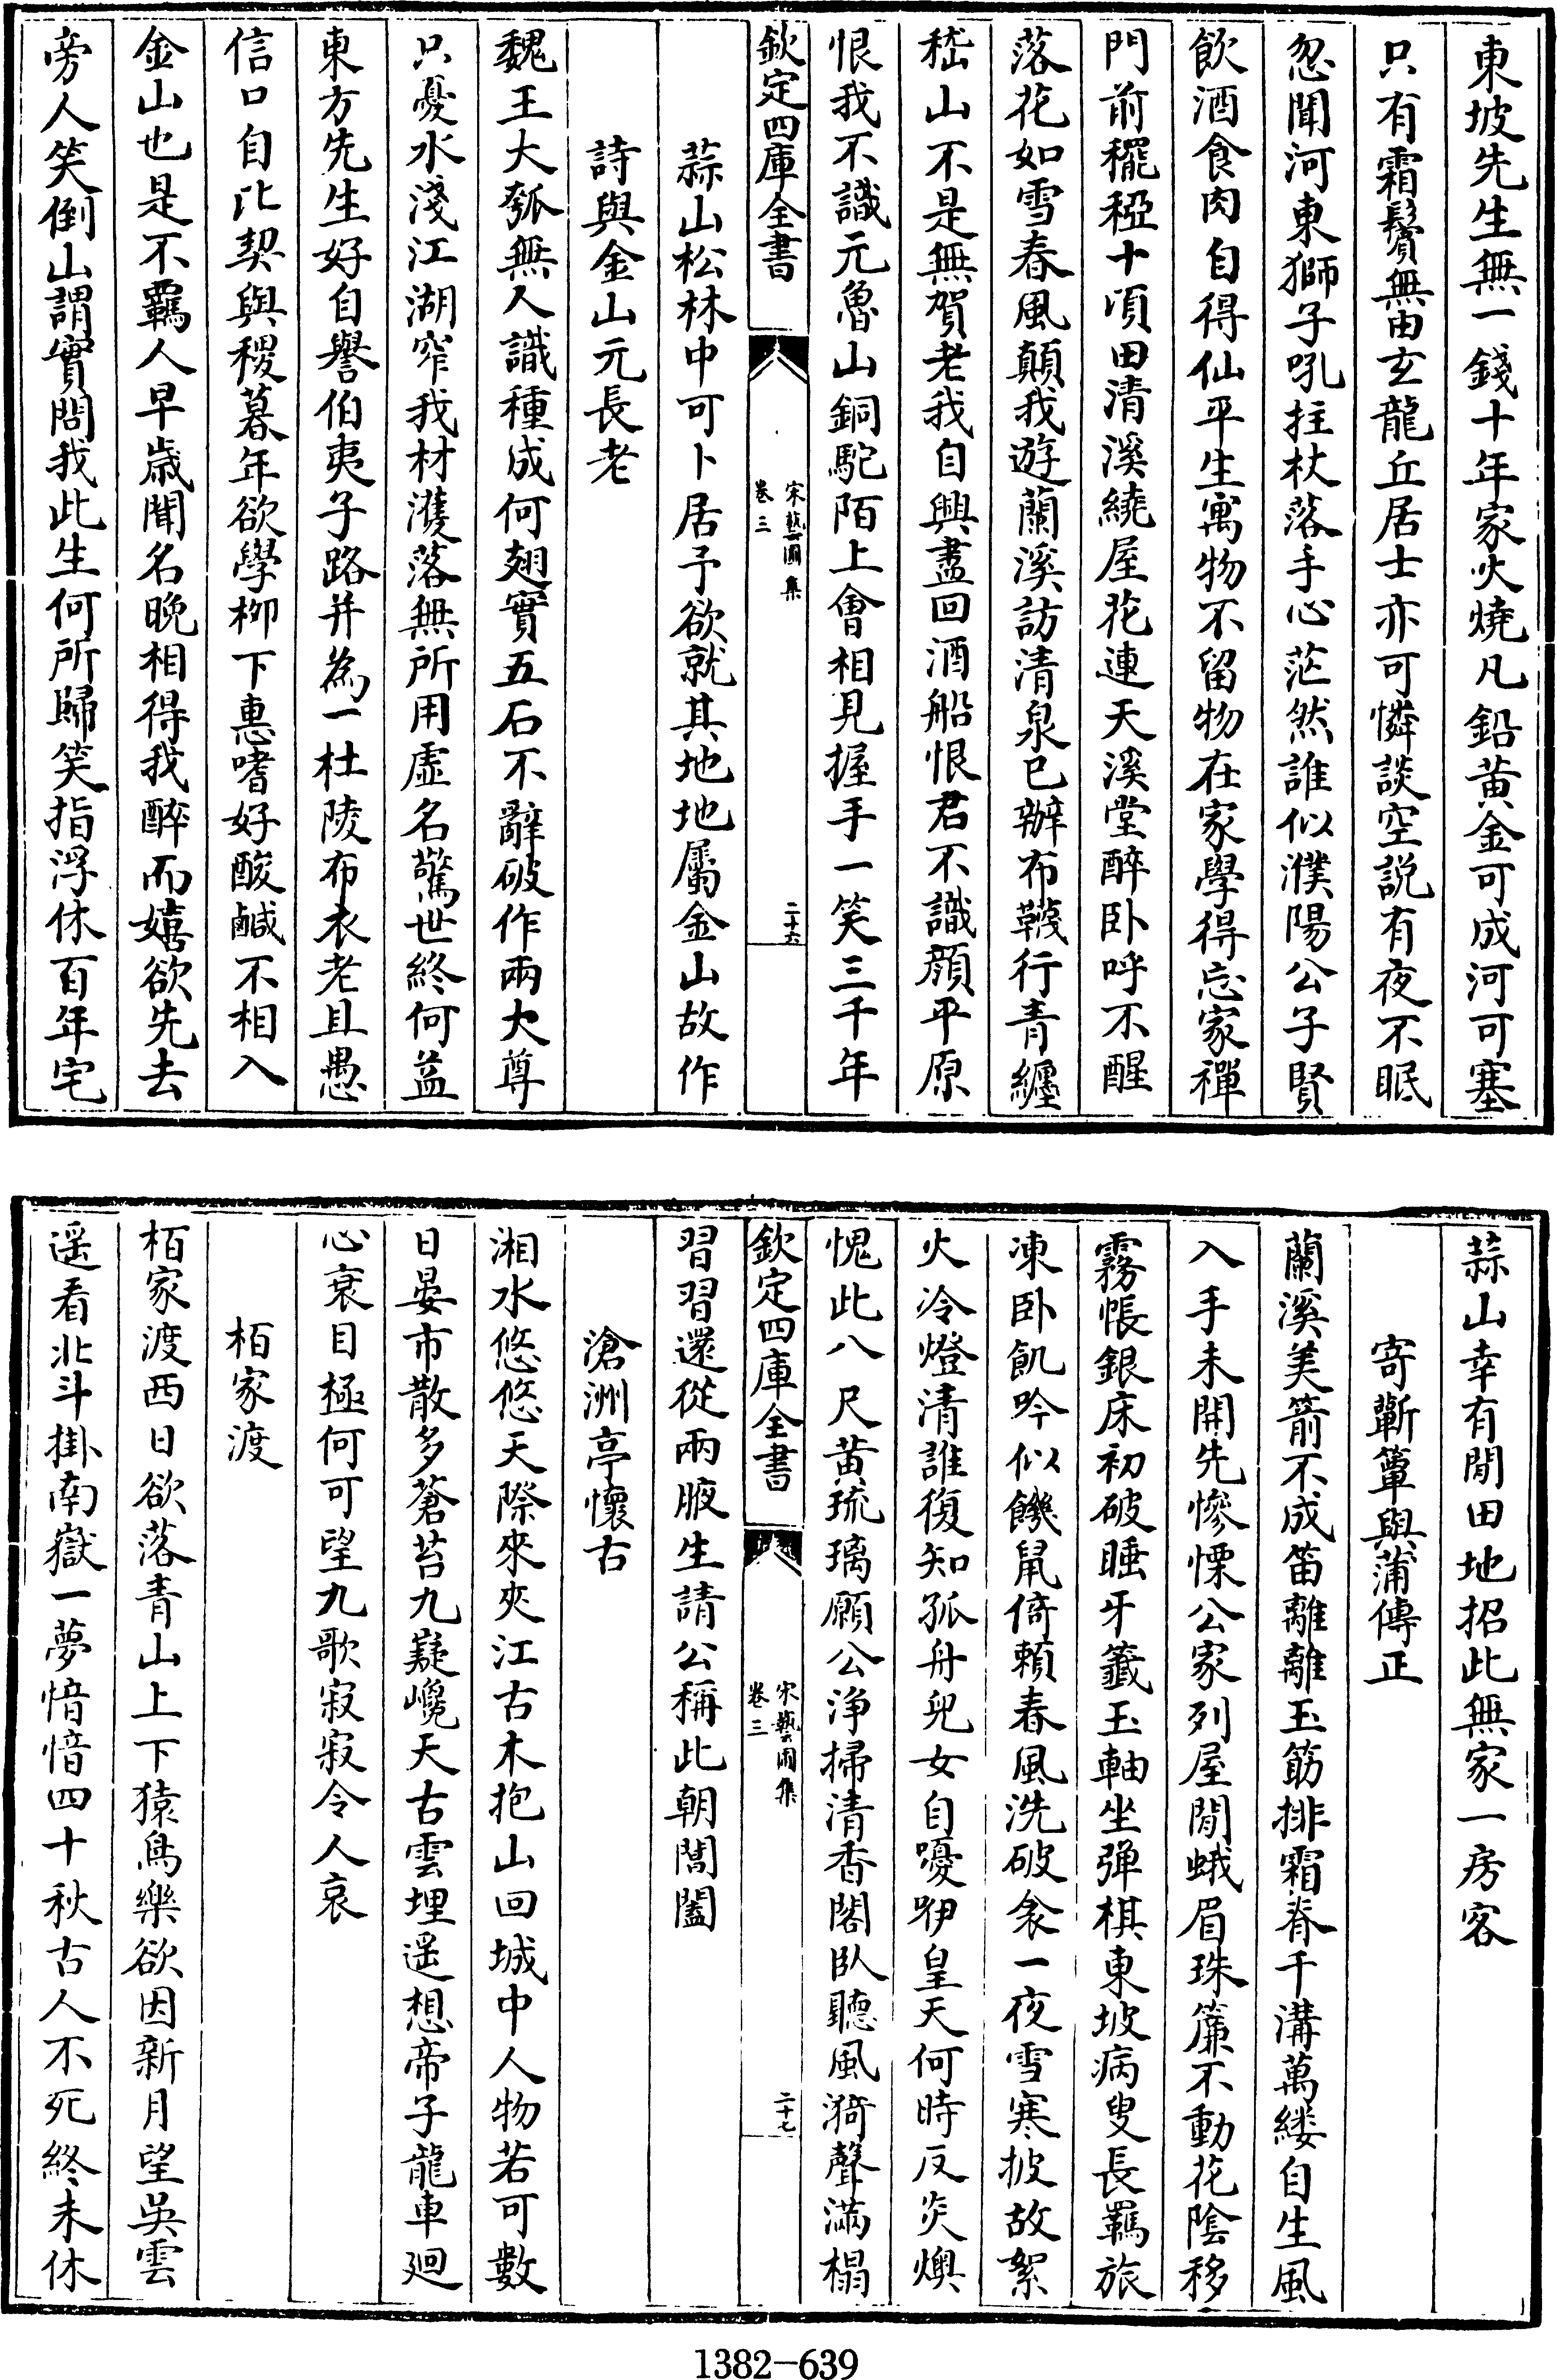 東坡先生無一錢十年家火燒凡鉛黃金可成河可塞
只有霜鬢無由玄龍丘居士亦可憐談空説有夜不眠
忽聞河東獅子吼拄杖落手心茫然誰似濮陽公子賢
飲酒食肉自得仙平生寓物不留物在家學得忘家禪
門前䆉稏十頃田清溪繞屋花連天溪堂醉卧呼不醒
落花如雪春風顛我遊蘭溪訪清泉已辦布韈行青纏
嵇山不是無賀老我自興盡回酒船恨君不識顔平原
恨我不識元魯山銅駝陌上會相見握手一笑三千年
欽定四庫全書
宋藝圃集
卷三
二十六
蒜山松林中可卜居予欲就其地地屬金山故作
詩與金山元長老
魏王大瓠無人識種成何翅實五石不辭破作兩大尊
只憂水淺江湖窄我材濩落無所用虛名驚世終何益
東方先生好自譽伯夷子路并為一杜陵布衣老且愚
信口自比契與稷暮年欲學柳下惠嗜好酸鹹不相入
金山也是不羈人早歳聞名晚相得我醉而嬉欲先去
旁人笑倒山謂實問我此生何所歸笑指浮休百年宅
蒜山幸有閒田地招此無家一房客
寄蘄簟與蒲傳正
蘭溪美箭不成笛離離玉筯排霜脊千溝萬縷自生風
入手未開先慘慄公家列屋閒蛾眉珠簾不動花陰移
霧帳銀床初破睡牙籤玉軸坐彈棋東坡病叟長羈旅
凍卧飢吟似饑鼠倚賴春風洗破衾一夜雪寒披故絮
火冷燈清誰復知孤舟兒女自嚘咿皇天何時反炎燠
愧此八尺黃琉璃願公淨掃清香閣臥聽風漪聲滿榻
欽定四庫全書
宋藝圃集
卷三
二十七
習習還從兩腋生請公稱此朝閶闔
滄洲亭懷古
湘水悠悠天際來夾江古木抱山回城中人物若可數
日晏市散多蒼苔九嶷巉天古雲埋遥想帝子龍車廻
心衰目極何可望九歌寂寂令人哀
栢家渡
栢家渡西日欲落青山上下猿鳥樂欲因新月望吳雲
遥看北斗掛南嶽一夢愔愔四十秋古人不死終未休
1382-639